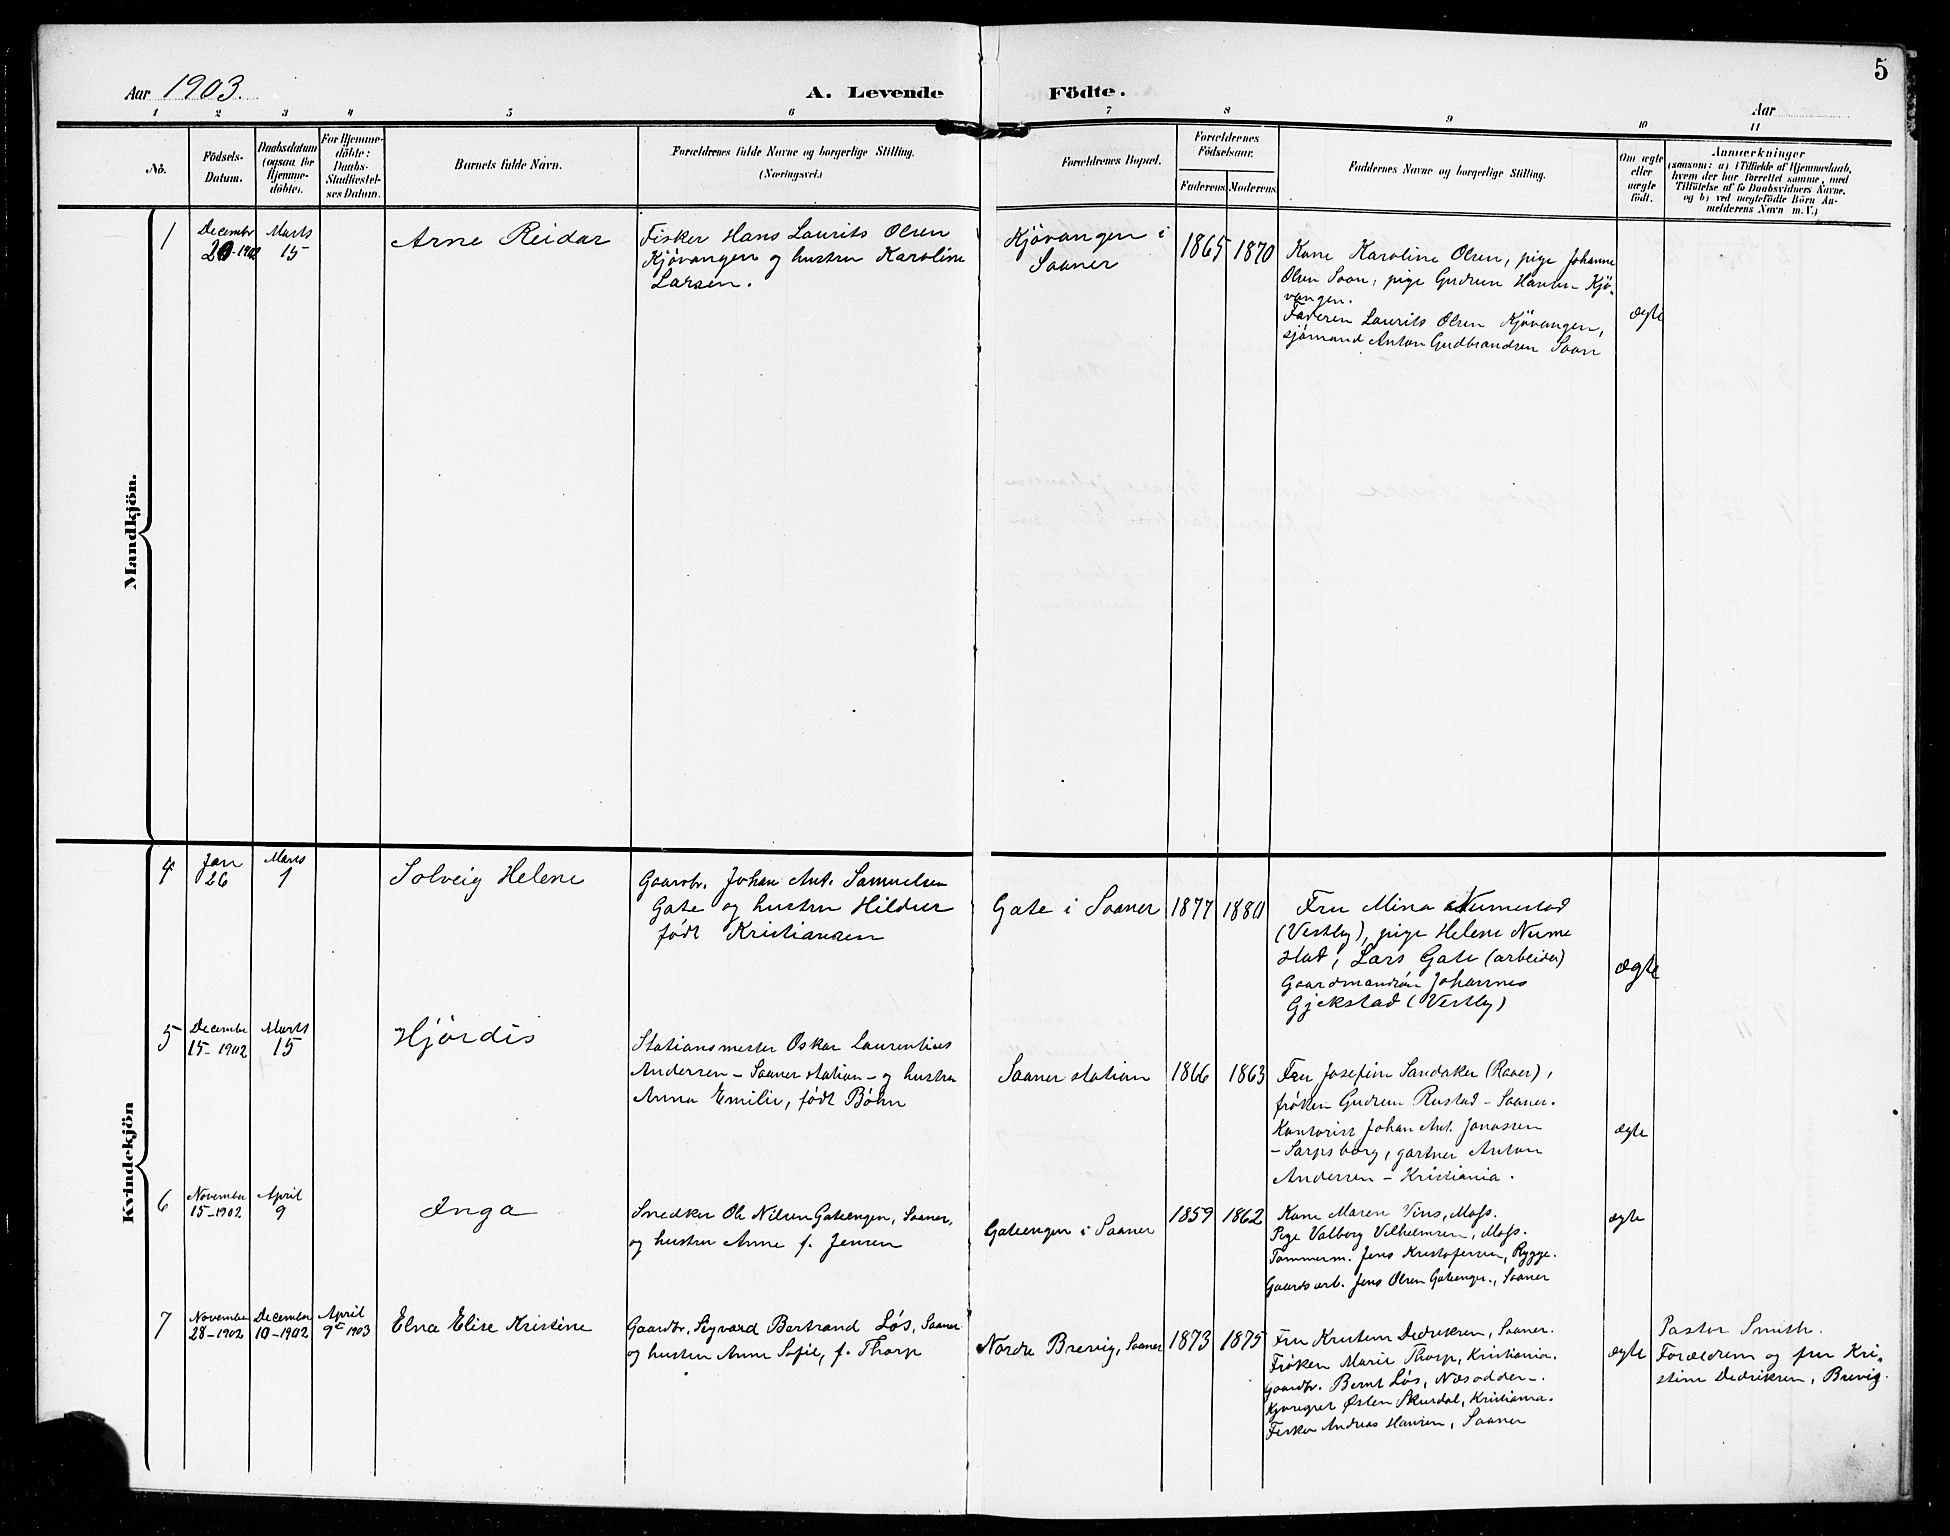 5
Aar 1903.
A. Levende Födte.
Aar
1 2 3 4 5 6 7 8 9 10 11
No.
Födsels-
Datum.
Daabsdatum
(ogsaa for
Hjemme-
döbte).
For Hjemme-
döbte:
Daabs-
Stadfæstel-
ses Datum.
Barnets fulde Navn.
Forældrenes fulde Navne og borgerlige Stilling.
(Næringsvei.)
Forældrenes Bopæl.
Forældrenes
Födselsaar.
Faderens. Moderens.
Faddernes Navne og borgerlige Stilling.
Om ægte
eller
uægte
födt.
Anmærkninger
(saasom: a) i Tilfælde af Hjemmedaab,
hvem der har forrettet samme, med
Tilföielse af to Daabsvidners Navne,
og b) ved uægtefödte Börn An-
melderens Navn m. V.)
Mandkjön.
1
Decembr
20-1902
Marts
15
Arne Reidar
Fisker Hans Laurits Olsen
Kjövangen og hustru Karoline
Larsen.
Kjövangen i
Saaner
1865 1870
Kone Karoline Olsen, pige Johanne
Olsen Soon, pige Gudrun Hansen Kjö-
vangen.
Faderen Laurits Olsen Kjövangen,
sjömand Anton Gudbrandsen Soon
ægte
Kvindekjön
4
Jan
26
Marts
1
Solveig Helene
Gaardbr. Johan Ant. Samuelsen
Gate og hustru Hildur
født Kristiansen
Gate i Saaner
1877 1880
Fru Mina Numestad
(Vestby), pige Helene Nume
stad, Lars Gate (arbeider)
Gaardmandsön Johannes
Gjekstad (Vestby)
ægte
5
Decembr
15-1902
Marts
15
Hjördis
Stationsmester Oskar Laurentius
Andersen – Saaner station – og hustru
Anna Emilie, født Bøhn
Saaner station
1866 1863
Fru Josefine Sandaker (Raaer),
frøken Gudrun Rustad – Saaner.
Kontorist Johan Ant. Jonassen
– Sarpsborg, gartner Anton
Andersen – Kristiania.
ægte
6
November
15-1902
April
9
Inga
Snedker Ole Nilsen Gateengen, Saaner,
og hustru Anne f. Jensen
Gateengen i Saaner
1859 1862
Kone Maren Vins, Moss.
Pige Valborg Vilhelmsen, Moss.
Tømmerm. Jens Kristofersen, Rygge.
Gaardsarb. Jens Olsen Gateengen, Saaner
ægte
7
November
28-1902
December
10-1902
April
9 1903
Elna Elise Kristine
Gaardbr. Sigvard Bertrand Løs, Saaner
og hustru Anne Sofie, f. Thorp
Nordre Brevig, Saaner
1873 1875
Fru Kristine Dedriksen, Saaner.
Frøken Marie Thorp, Kristiania.
Gaardbr. Bernt Løs, Næsodden.
Østen Skurdal, Kristiania.
Fisker Andreas Hansen, Saaner
ægte
Pastor Smith.
Forældrene og fru Kri-
stine Dedriksen, Brevig.